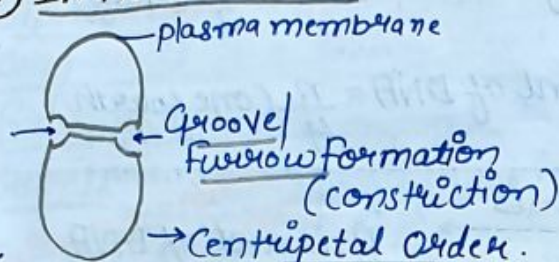 plasma membrane
Groove/
Furrow formation
(constriction)
→ Centripetal order.